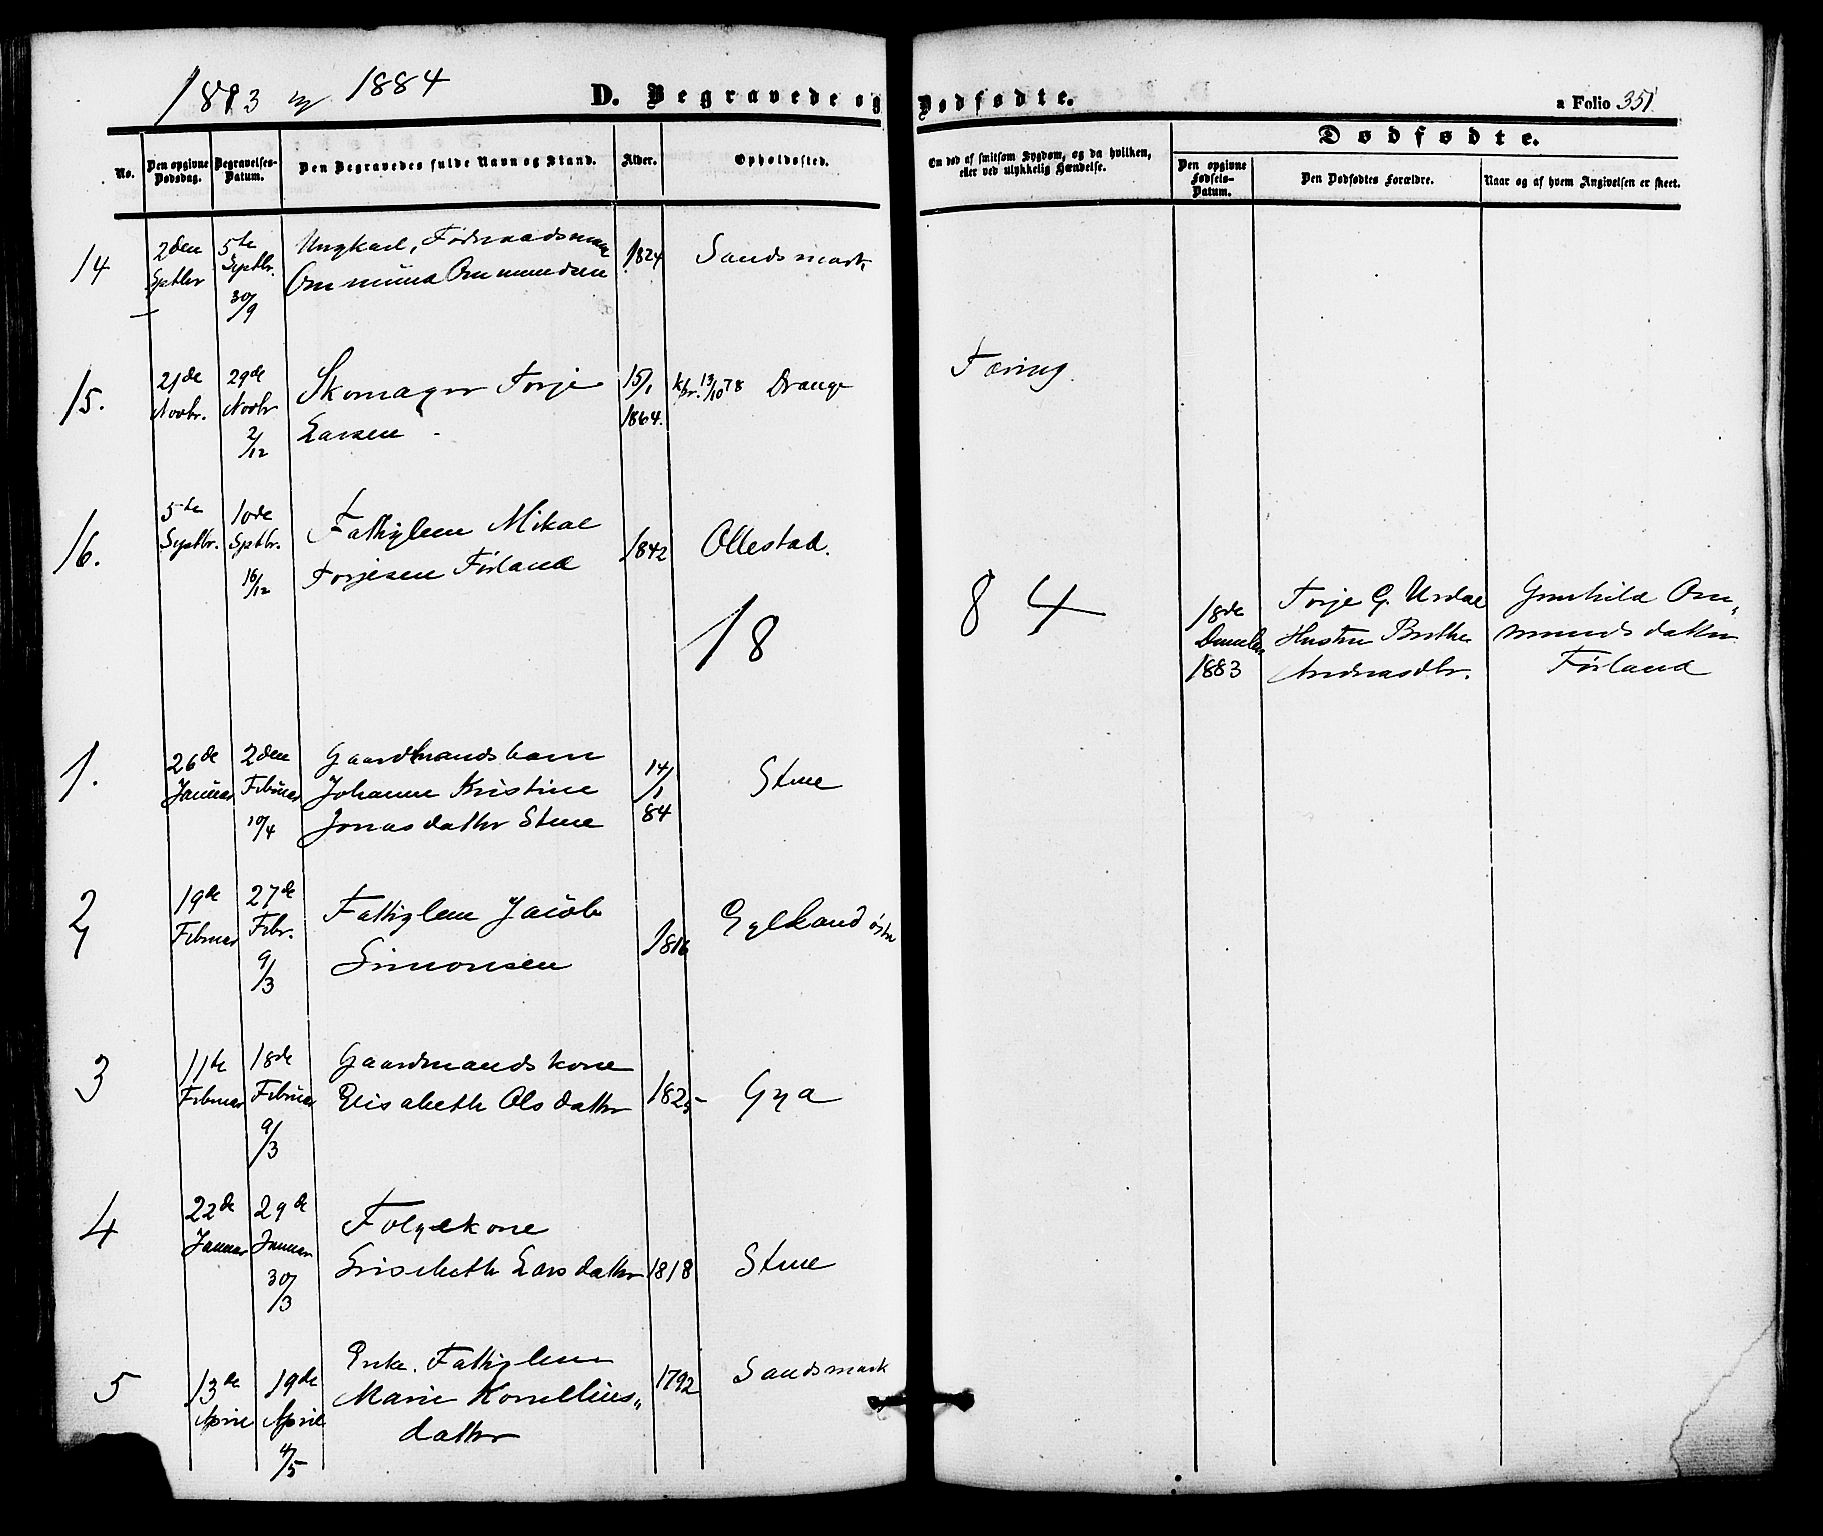 1883 og 1884
D. Begravede og Dødfødte.
a Folio 351
No.
Den opgivne Dødsdag.
Begravelses-Datum.
Den Begravedes fulde Navn og Stand.
Alder.
Opholdssted.
En død af smitsom Sygdom, og da hvilken,
eller ved ulykkelig Hændelse.
Dødfødte.
Den opgivne Fødsels-Datum.
Den Dødfødtes Forældre.
Naar og af hvem Angivelsen er skeet.
14
2den Septbr
5te Septbr. 30/9
Ungkarl, Føderaadsmand
Ommund Ommundsen
1824
Sandsmark
15.
21de Novbr.
29de Novbr 2/12
Skomager Torje
Larsen
15/1 1864.
kfr. 13/10 78 Drange
Tæring.
16.
5te Septbr.
10de Septbr. 16/12
Fattiglem Mikal
TorjesenFørland
1842
Ollestad.
18 84
18de Decembr 1883
Torje G. Urdal
Hustru Berthe
Andreasdtr.
Gunhild Om„
mundsdatter
Førland
1.
26de Januar
2den Februar 10/4
Gaardmandsbarn
Johanne Kristine
Jonasdatter Stene
14/1 84
Stene
2
19de Februar
27de Febr. 9/3
Fattiglem Jacob
Simonsen
1816
Eglland østre
3
11te Februar
18de Februar 9/3
Gaardmandskone
Elisabeth Olsdatter
1825
Gya
4
22de Januar
29de Januar 30/3
Folgekone
Lisebeth Larsdatter
1818
Stene
5
13de April
19de April 4/5
Enke. Fattiglem
Marie Kornelius„
datter
1792
Sandsmark